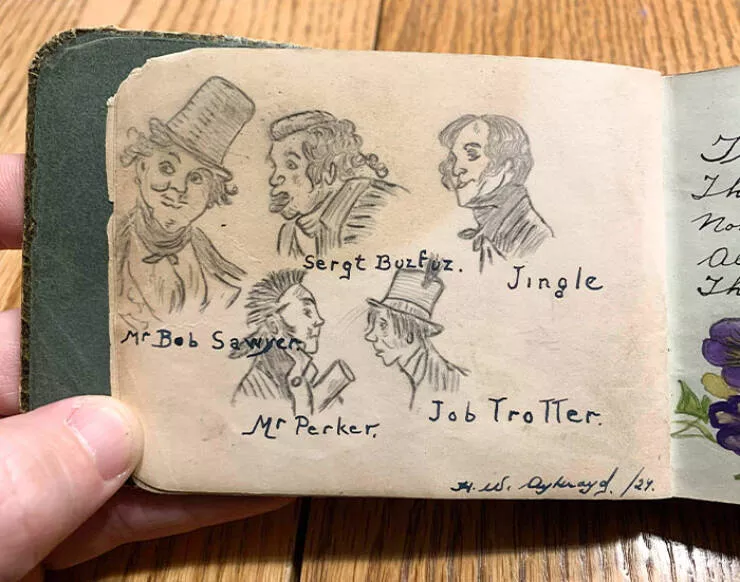 Sergt Buzfuz.
Jingle
Mr Bob Sawyer.
Mr Perker.
Job Trotter.
H. W. Aykroyd. /24.